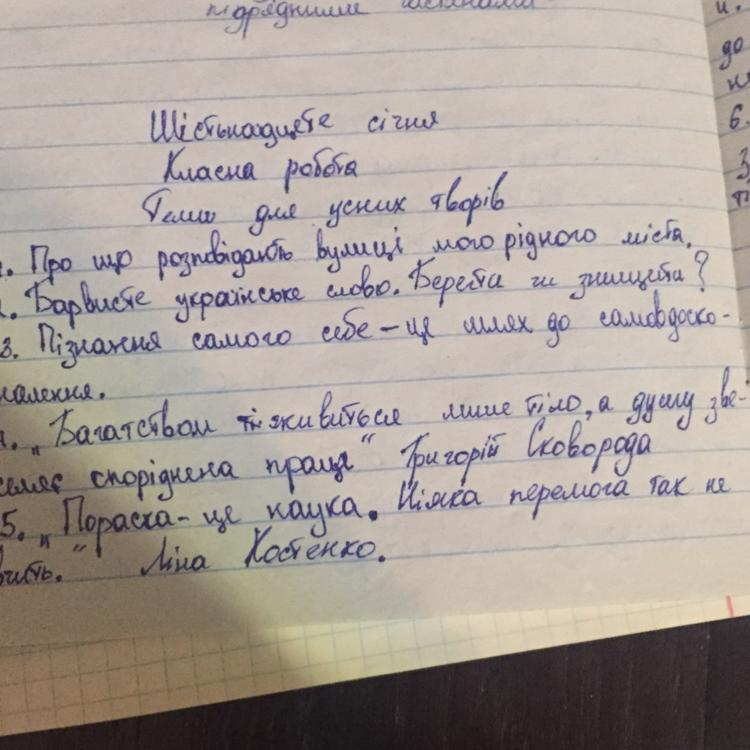 підрядними
Шістьнадцяте січня
Класна робота
Теми для усних творів
1. Про що розповідають вулиці мого рідного міста.
2. Барвисте українське слово. Берегти чи знищити?
3. Пізнання самого себе – це шлях до самовдоско-
налення.
4. „Багатством живиться лише тіло, а душу зве-
селяє споріднена праця“ Григорій Сковорода
5. „Поразка – це наука. Ніяка перемога так не
вчить.“ Ліна Костенко.
до
6.